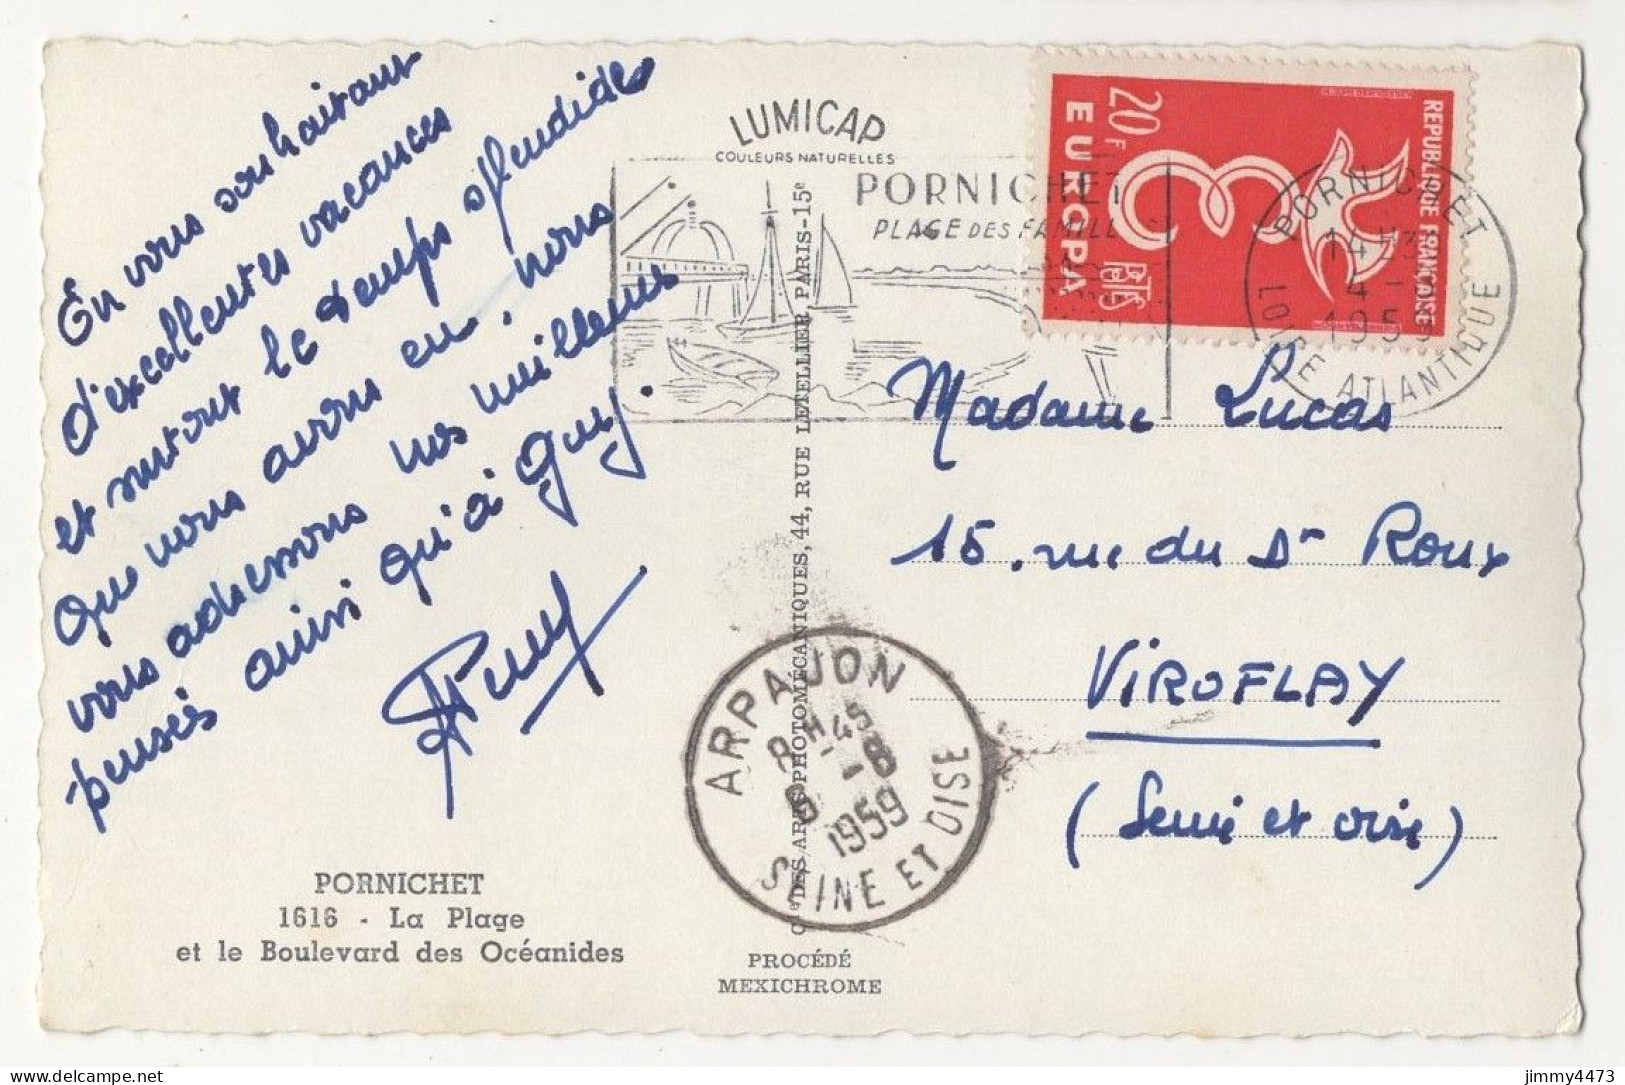 En vous souhaitant
d'excellentes vacances
et surtout le temps splendide
que nous avons eu, nous
vous adressons nos meilleures
pensées ainsi qu'à Guy.
PORNICHET
1616 - La Plage
et le Boulevard des Océanides
LUMICAP
COULEURS NATURELLES
DES ARTS PHOTOMÉCANIQUES, 44, RUE LETELLIER PARIS-15e
PROCÉDÉ
MEXICHROME
PORNICHET
PLAGE DES FAMILLES
REPUBLIQUE FRANÇAISE
20F
EUROPA
POSTES
PORNICHET
14H3
4-
195
LOIRE ATLANTIQUE
Madame Lucas
15. rue du Dr Roux
VIROFLAY
(Seine et oise)
ARPAJON
8H45
6-8
1959
SEINE ET OISE
delcampe.net
jimmy4473